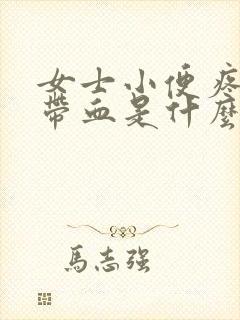 女士小便疼
带血是什麼
馬志强